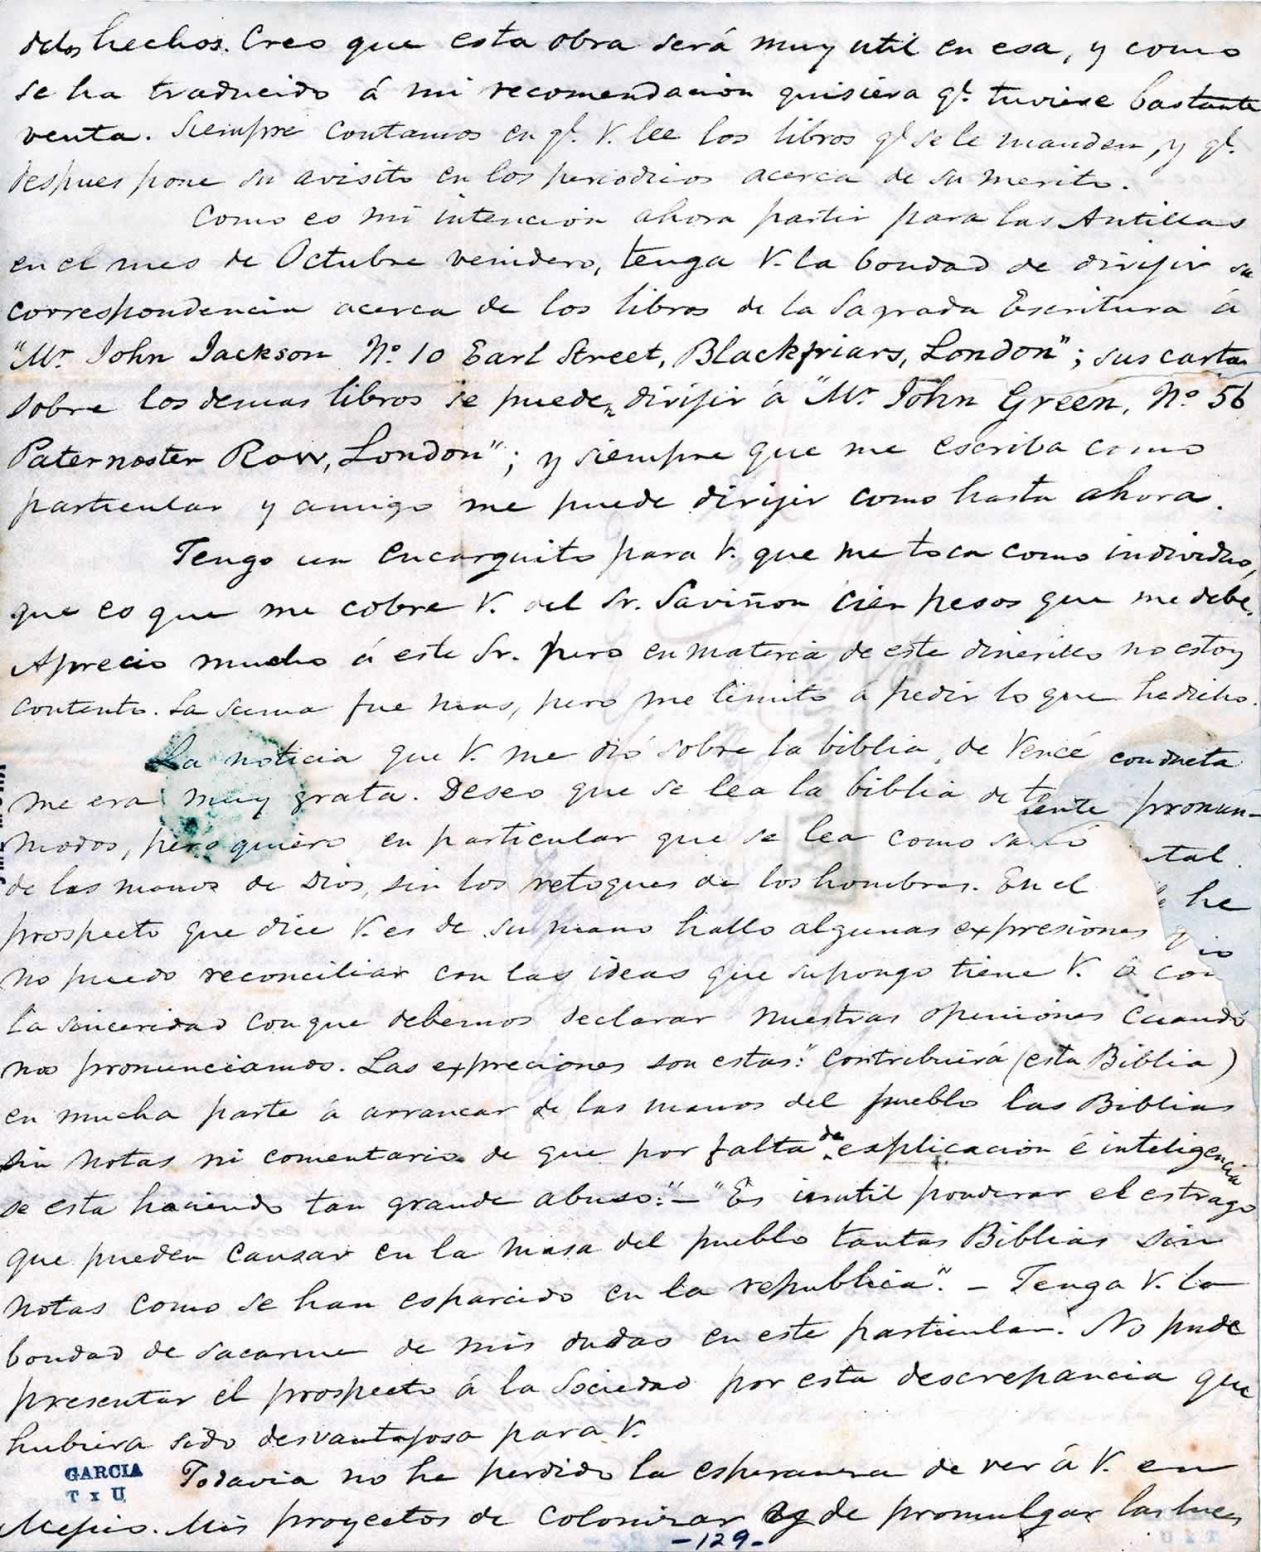 delos hechos. Creo que esta obra será muy util en esa, y como
se ha traducido á mi recomendacion quisiera qe. tuviese bastante
venta. Siempre contamos en qe. V. lee los libros qe se le manden, y qe.
despues pone su avisito en los periodicos acerca de su merito.
Como es mi intencion ahora partir para las Antillas
en el mes de Octubre venidero, tenga V. la bondad de dirijir su
correspondencia acerca de los libros de la Sagrada Escritura á
"Mr John Jackson No. 10 Earl Street, Blackfriars, London"; sus cartas
sobre los demas libros se pueden dirijir á "Mr John Green, No 56
Paternoster Row, London"; y siempre que me escriba como
particular y amigo me puede dirijir como hasta ahora.
Tengo un encarguito para V. que me toca como individuo,
que es que me cobre V. del Sr. Saviñon cien pesos que me debe.
Aprecio mucho á este Sr. pero en materia de este dinerillo no estoy
contento. La suma fue mas, pero me limito á pedir lo que he dicho.
La noticia que V. me dió sobre la biblia de Vencé conducta
me era muy grata. Deseo que se lea la biblia de t ente pronun-
modos, pero quiero en particular que se lea como salió tal.
de las manos de Dios, sin los retoques de los hombres. En el he
prospecto que dice V. es de su mano hallo algunas expresiones q io
no puedo reconciliar con las ideas que supongo tiene V. ó con
la sinceridad con que debemos declarar nuestras opiniones cuando
nos pronunciamos. Las expreciones son estas: "Contribuirá (esta Biblia)
en mucha parte á arrancar de las manos del pueblo las Biblias
sin notas ni comentarios de que por falta de explicacion é inteligencia
se esta haciendo tan grande abuso." — "Es inutil ponderar el estrago
que pueden causar en la masa del pueblo tantas Biblias sin
notas como se han esparcido en la republica". — Tenga V. la
bondad de sacarme de mis dudas en este particular. No pude
presentar el prospecto á la Sociedad por esta descrepancia que
hubiera sido desvantajosa para V.
GARCIA
T x U
Todavia no he perdido la esperanza de ver á V. en
Mejico. Mis proyectos de colonizar y de promulgar las luces
-129-